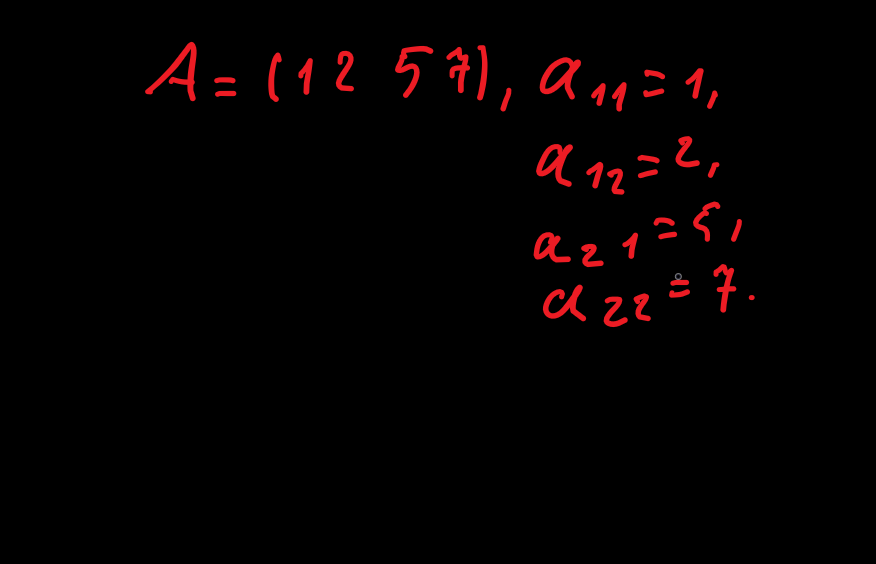 A = (1 2 5 7), a₁₁ = 1,
a₁₂ = 2,
a₂₁ = 5,
a₂₂ = 7.